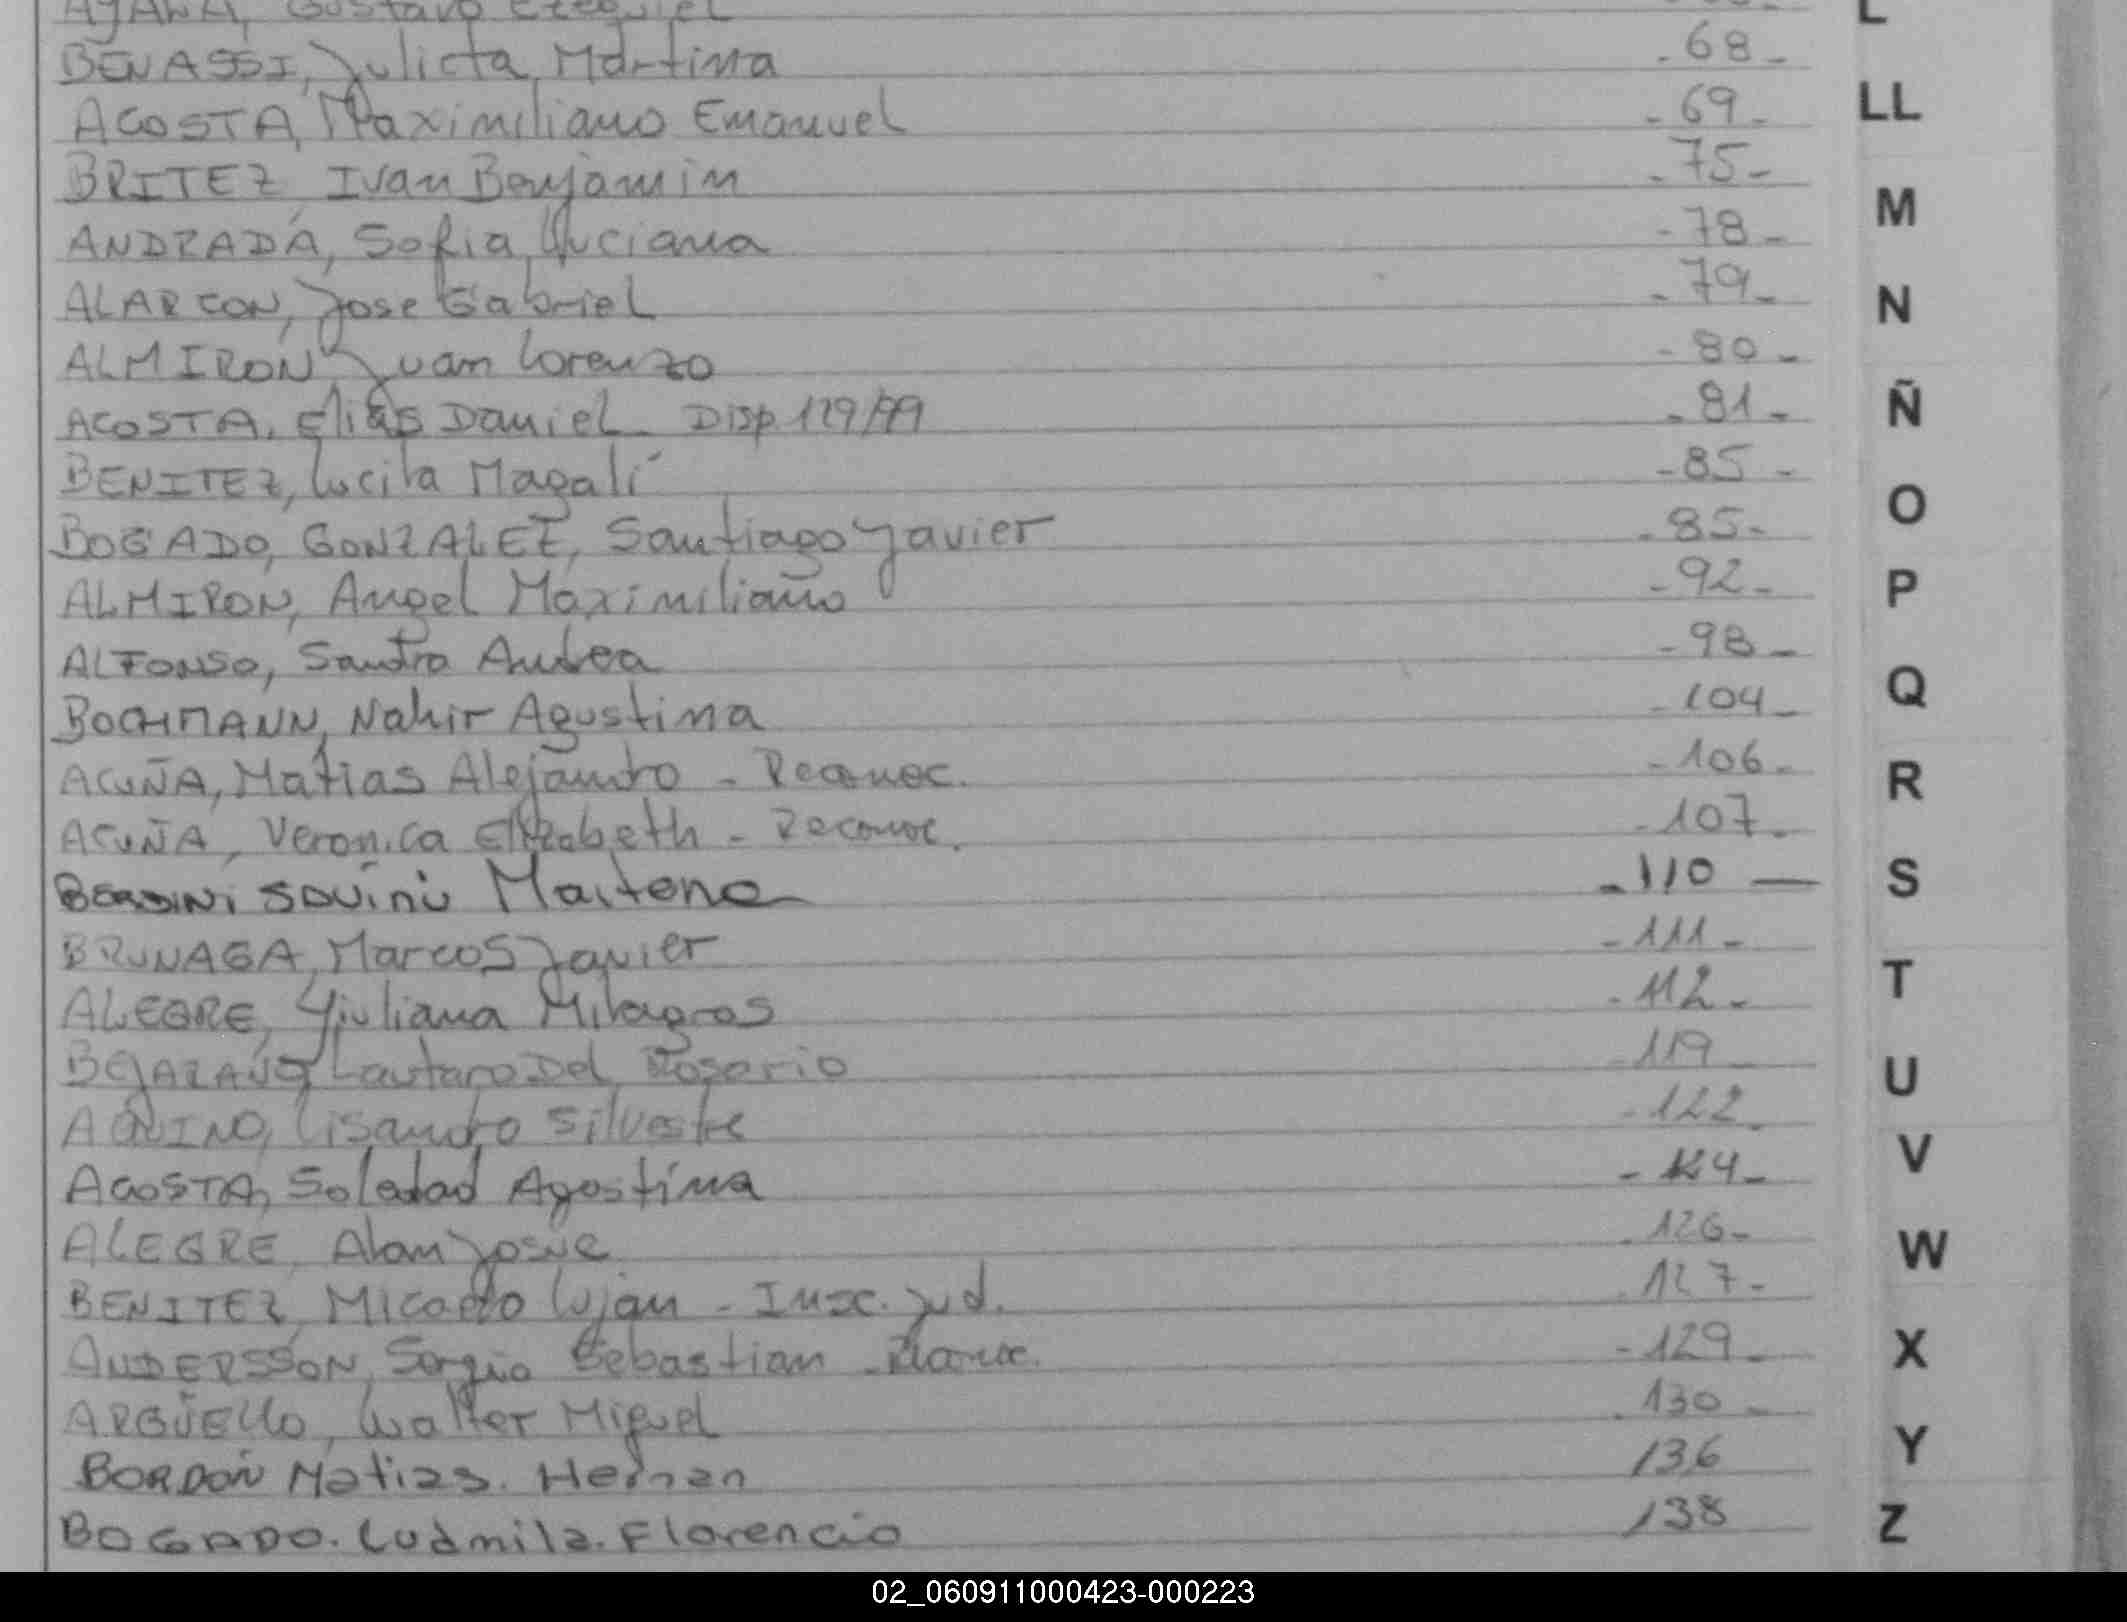 AYALA, Gustavo Ezequiel
BENASSI, Julieta Martina -68-
ACOSTA, Maximiliano Emanuel -69-
BRITEZ, Ivan Benjamin -75-
ANDRADA, Sofia Luciana -78-
ALARCON, Jose Gabriel -79-
ALMIRON Juan Lorenzo -80-
ACOSTA, Elias Daniel - DISP 129/99 -81-
BENITEZ, Lucila Magalí -85-
BOGADO, GONZALEZ, Santiago Javier -85-
ALMIRON, Angel Maximiliano -92-
ALFONSO, Sandra Andrea -98-
BOCHMANN, Nahir Agustina -104-
ACUÑA, Matias Alejandro - Reconoc. -106-
ACUÑA, Veronica Elizabeth - Reconoc. -107-
BERDINI Maitena -110-
BRUNAGA, Marcos Javier -111-
ALEGRE, Yiuliana Milagros -112-
BEJARANO Lautaro Del Rosario -119-
AQUINO, Lisandro Silvestre -122-
ACOSTA, Soledad Agostina -124-
ALEGRE, Alan Josue -126-
BENITEZ, Micaela Lujan - Insc. Jud. -127-
ANDERSSON, Sergio Sebastian - Reconoc. -129-
ARGÜELLO, Walter Miguel -130-
BORDON Matias. Hernan 136
BOGADO. Ludmila. Florencia 138
L
LL
M
N
Ñ
O
P
Q
R
S
T
U
V
W
X
Y
Z
02_060911000423-000223